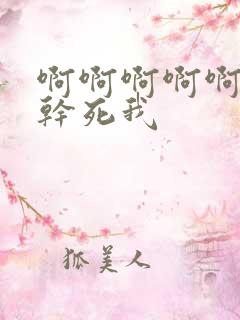 啊啊啊啊啊
幹死我
狐美人